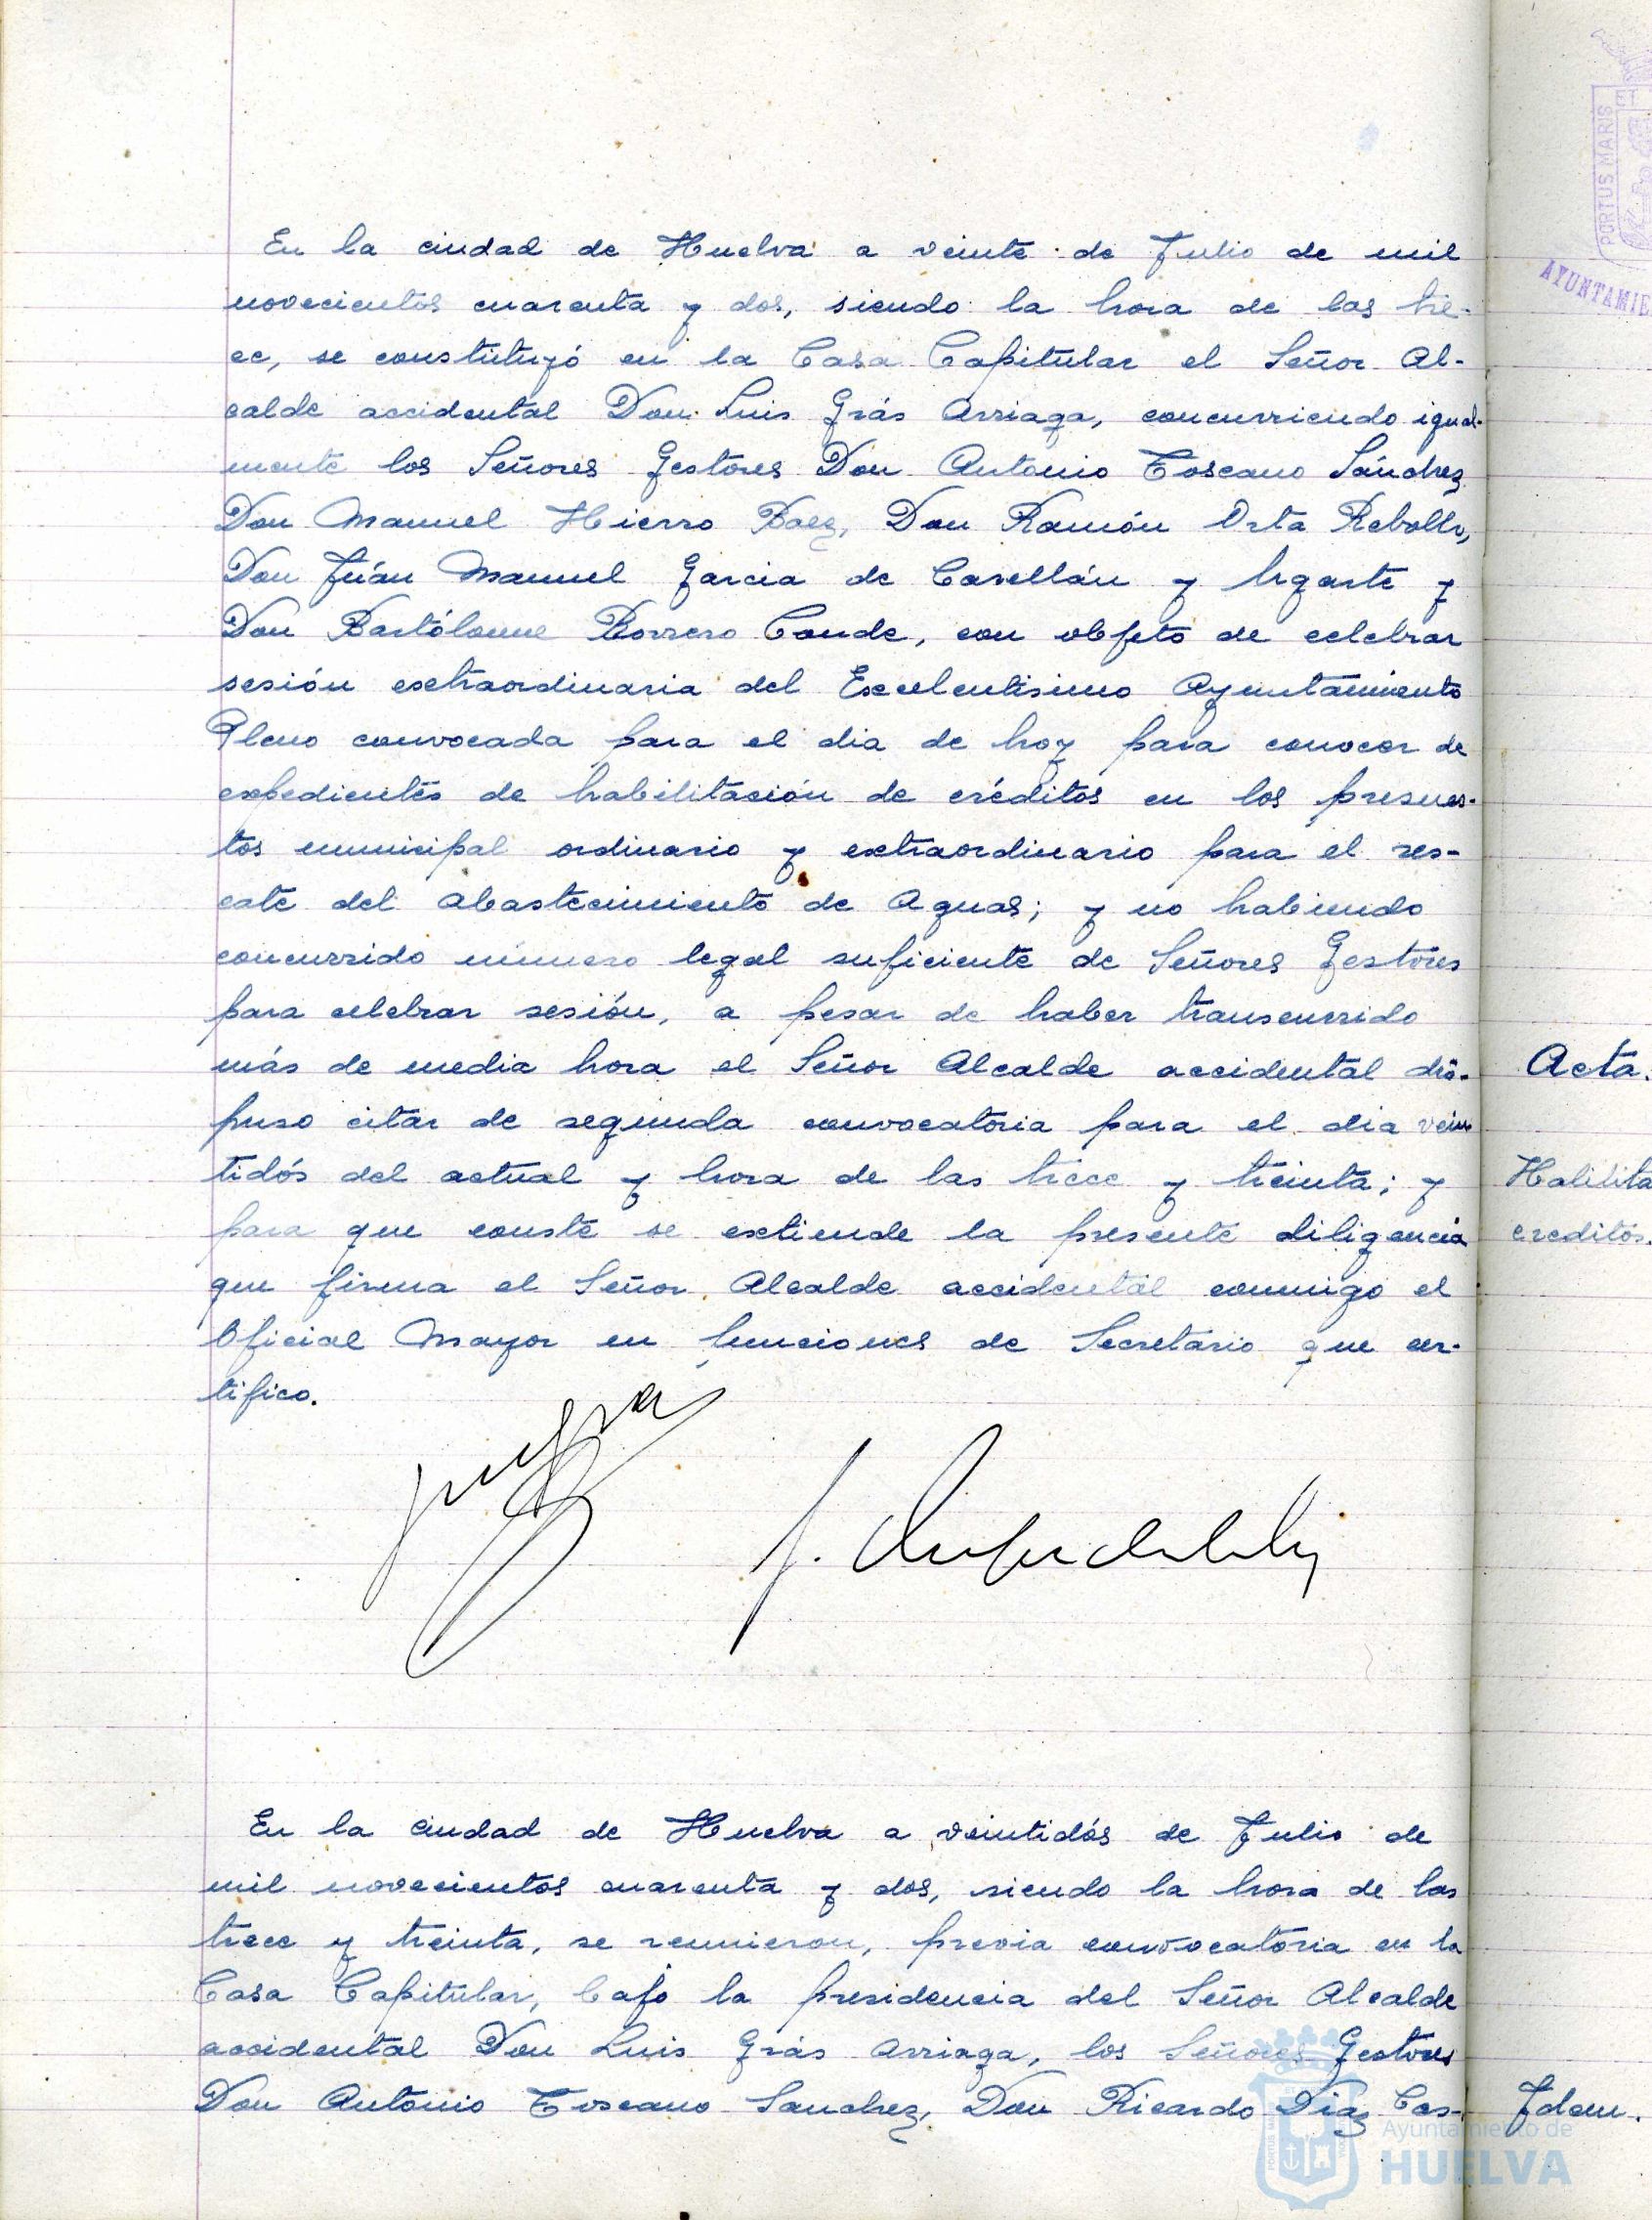 En la ciudad de Huelva a veinte de Julio de mil
novecientos cuarenta y dos, siendo la hora de las tre-
ce, se constituyó en la Casa Capitular el Señor Al-
calde accidental Don Luis Grás Arriaga, concurriendo igual-
mente los Señores Gestores Don Antonio Toscano Sánchez
Don Manuel Hierro Baez, Don Ramón Orta Rebollo,
Don Juán Manuel Garcia de Cavellán y Ugarte y
Don Bartólome Borrero Conde, con objeto de celebrar
sesión extraordinaria del Excelentisimo Ayuntamiento
Pleno convocada para el dia de hoy para conocer de
expedientes de habilitación de créditos en los presues-
tos municipal ordinario y extraordinario para el res-
cate del Abastecimiento de Aguas; y no habiendo
concurrido número legal suficiente de Señores Gestores
para celebrar sesión, a pesar de haber transcurrido
más de media hora el Señor Alcalde accidental dis-
puso citar de segunda convocatoria para el dia vein
tidós del actual y hora de las trece y treinta; y
para que conste se extiende la presente diligencia
que firma el Señor Alcalde accidental conmigo el
Oficial Mayor en funciones de Secretario que cer-
tifico.
En la ciudad de Huelva a veintidós de Julio de
mil novecientos cuarenta y dos, siendo la hora de las
trece y treinta, se reunieron, previa convocatoria en la
Casa Capitular, bajo la presidencia del Señor Alcalde
accidental Don Luis Grás Arriaga, los Señores Gestores
Don Antonio Toscano Sanchez, Don Ricardo Diaz Cas-
PORTUS MARIS ET
AYUNTAMIE
Acta.
Habilita
creditos.
Idem.
Ayuntamiento de
HUELVA